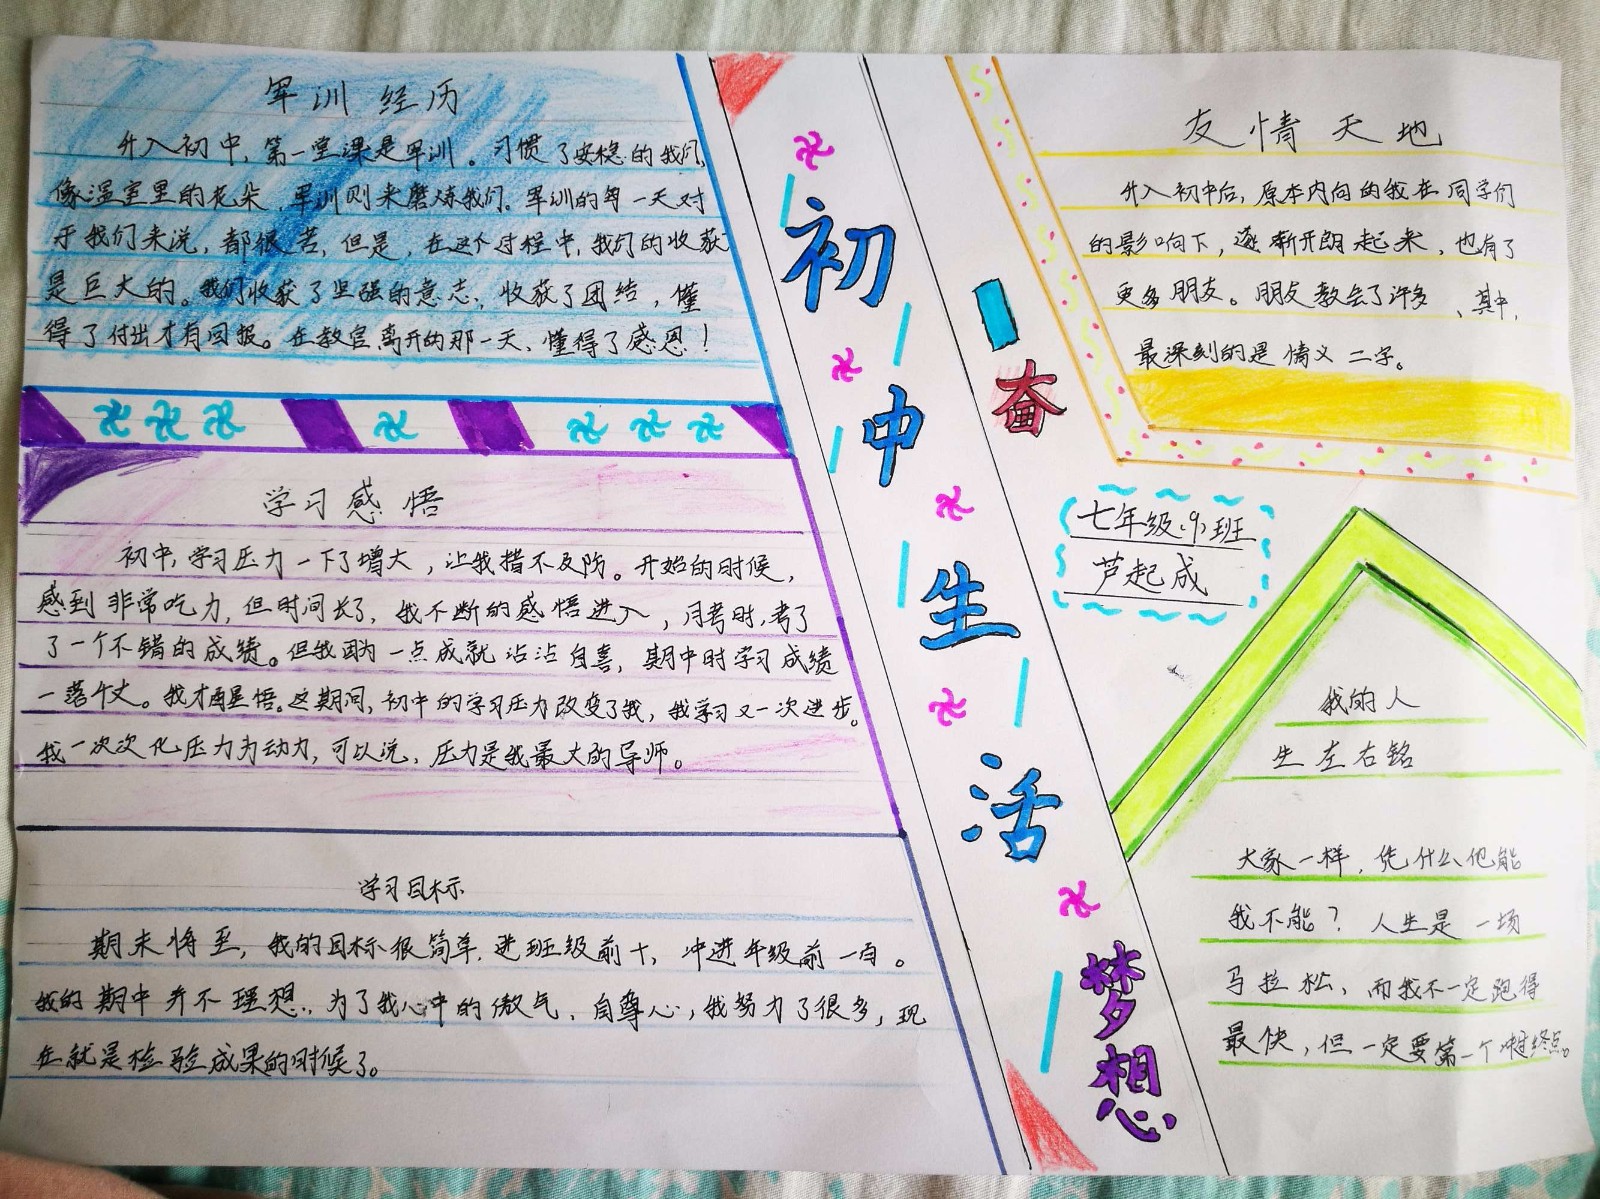 军训经历
升入初中,第一堂课是军训。习惯了安稳的我们,
像温室里的花朵,军训则来磨炼我们。军训的每一天对
于我们来说,都很苦,但是,在这个过程中,我们的收获
是巨大的。我们收获了坚强的意志,收获了团结,懂
得了付出才有回报。在教官离开的那一天,懂得了感恩!
学习感悟
初中,学习压力一下了增大,让我措不及防。开始的时候,
感到非常吃力,但时间长了,我不断的感悟进入,月考时,考了
了一个不错的成绩。但我因为一点成就沾沾自喜,期中时学习成绩
一落千丈。我才醒悟。这期间,初中的学习压力改变了我,我学习又一次进步。
我一次次化压力为动力,可以说,压力是我最大的导师。
学习目标
期末将至,我的目标很简单,进班级前十,冲进年级前一百。
我的期中并不理想,为了我心中的傲气、自尊心,我努力了很多,现
在就是检验成果的时候了。
初中生活
奋
梦想
友情天地
升入初中后,原本内向的我在同学们
的影响下,逐渐开朗起来,也有了
更多朋友。朋友教会了许多、其中,
最深刻的是情义二字。
七年级(9)班
芦起成
我的人
生左右铭
大家一样,凭什么他能
我不能?人生是一场
马拉松、而我不一定跑得
最快,但一定要第一个冲过终点。